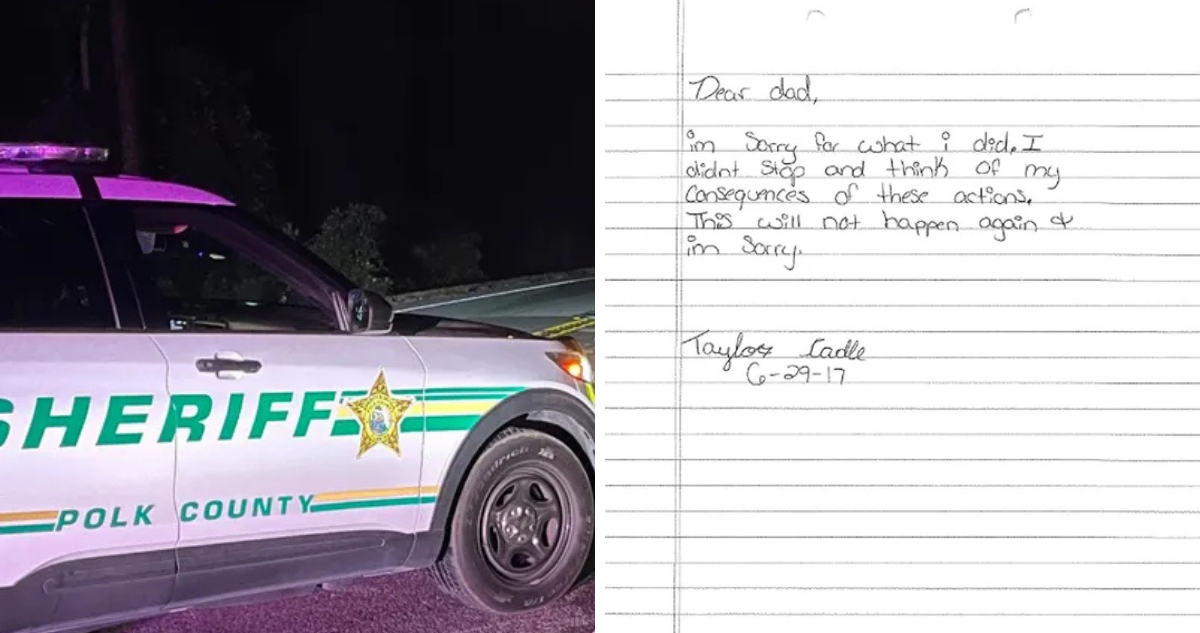 SHERIFF
POLK COUNTY
Dear dad,
im Sorry for what i did. I
didnt Stop and think of my
Consequences of these actions.
This will not happen again &
im Sorry.
Taylor Cadle
6-29-17